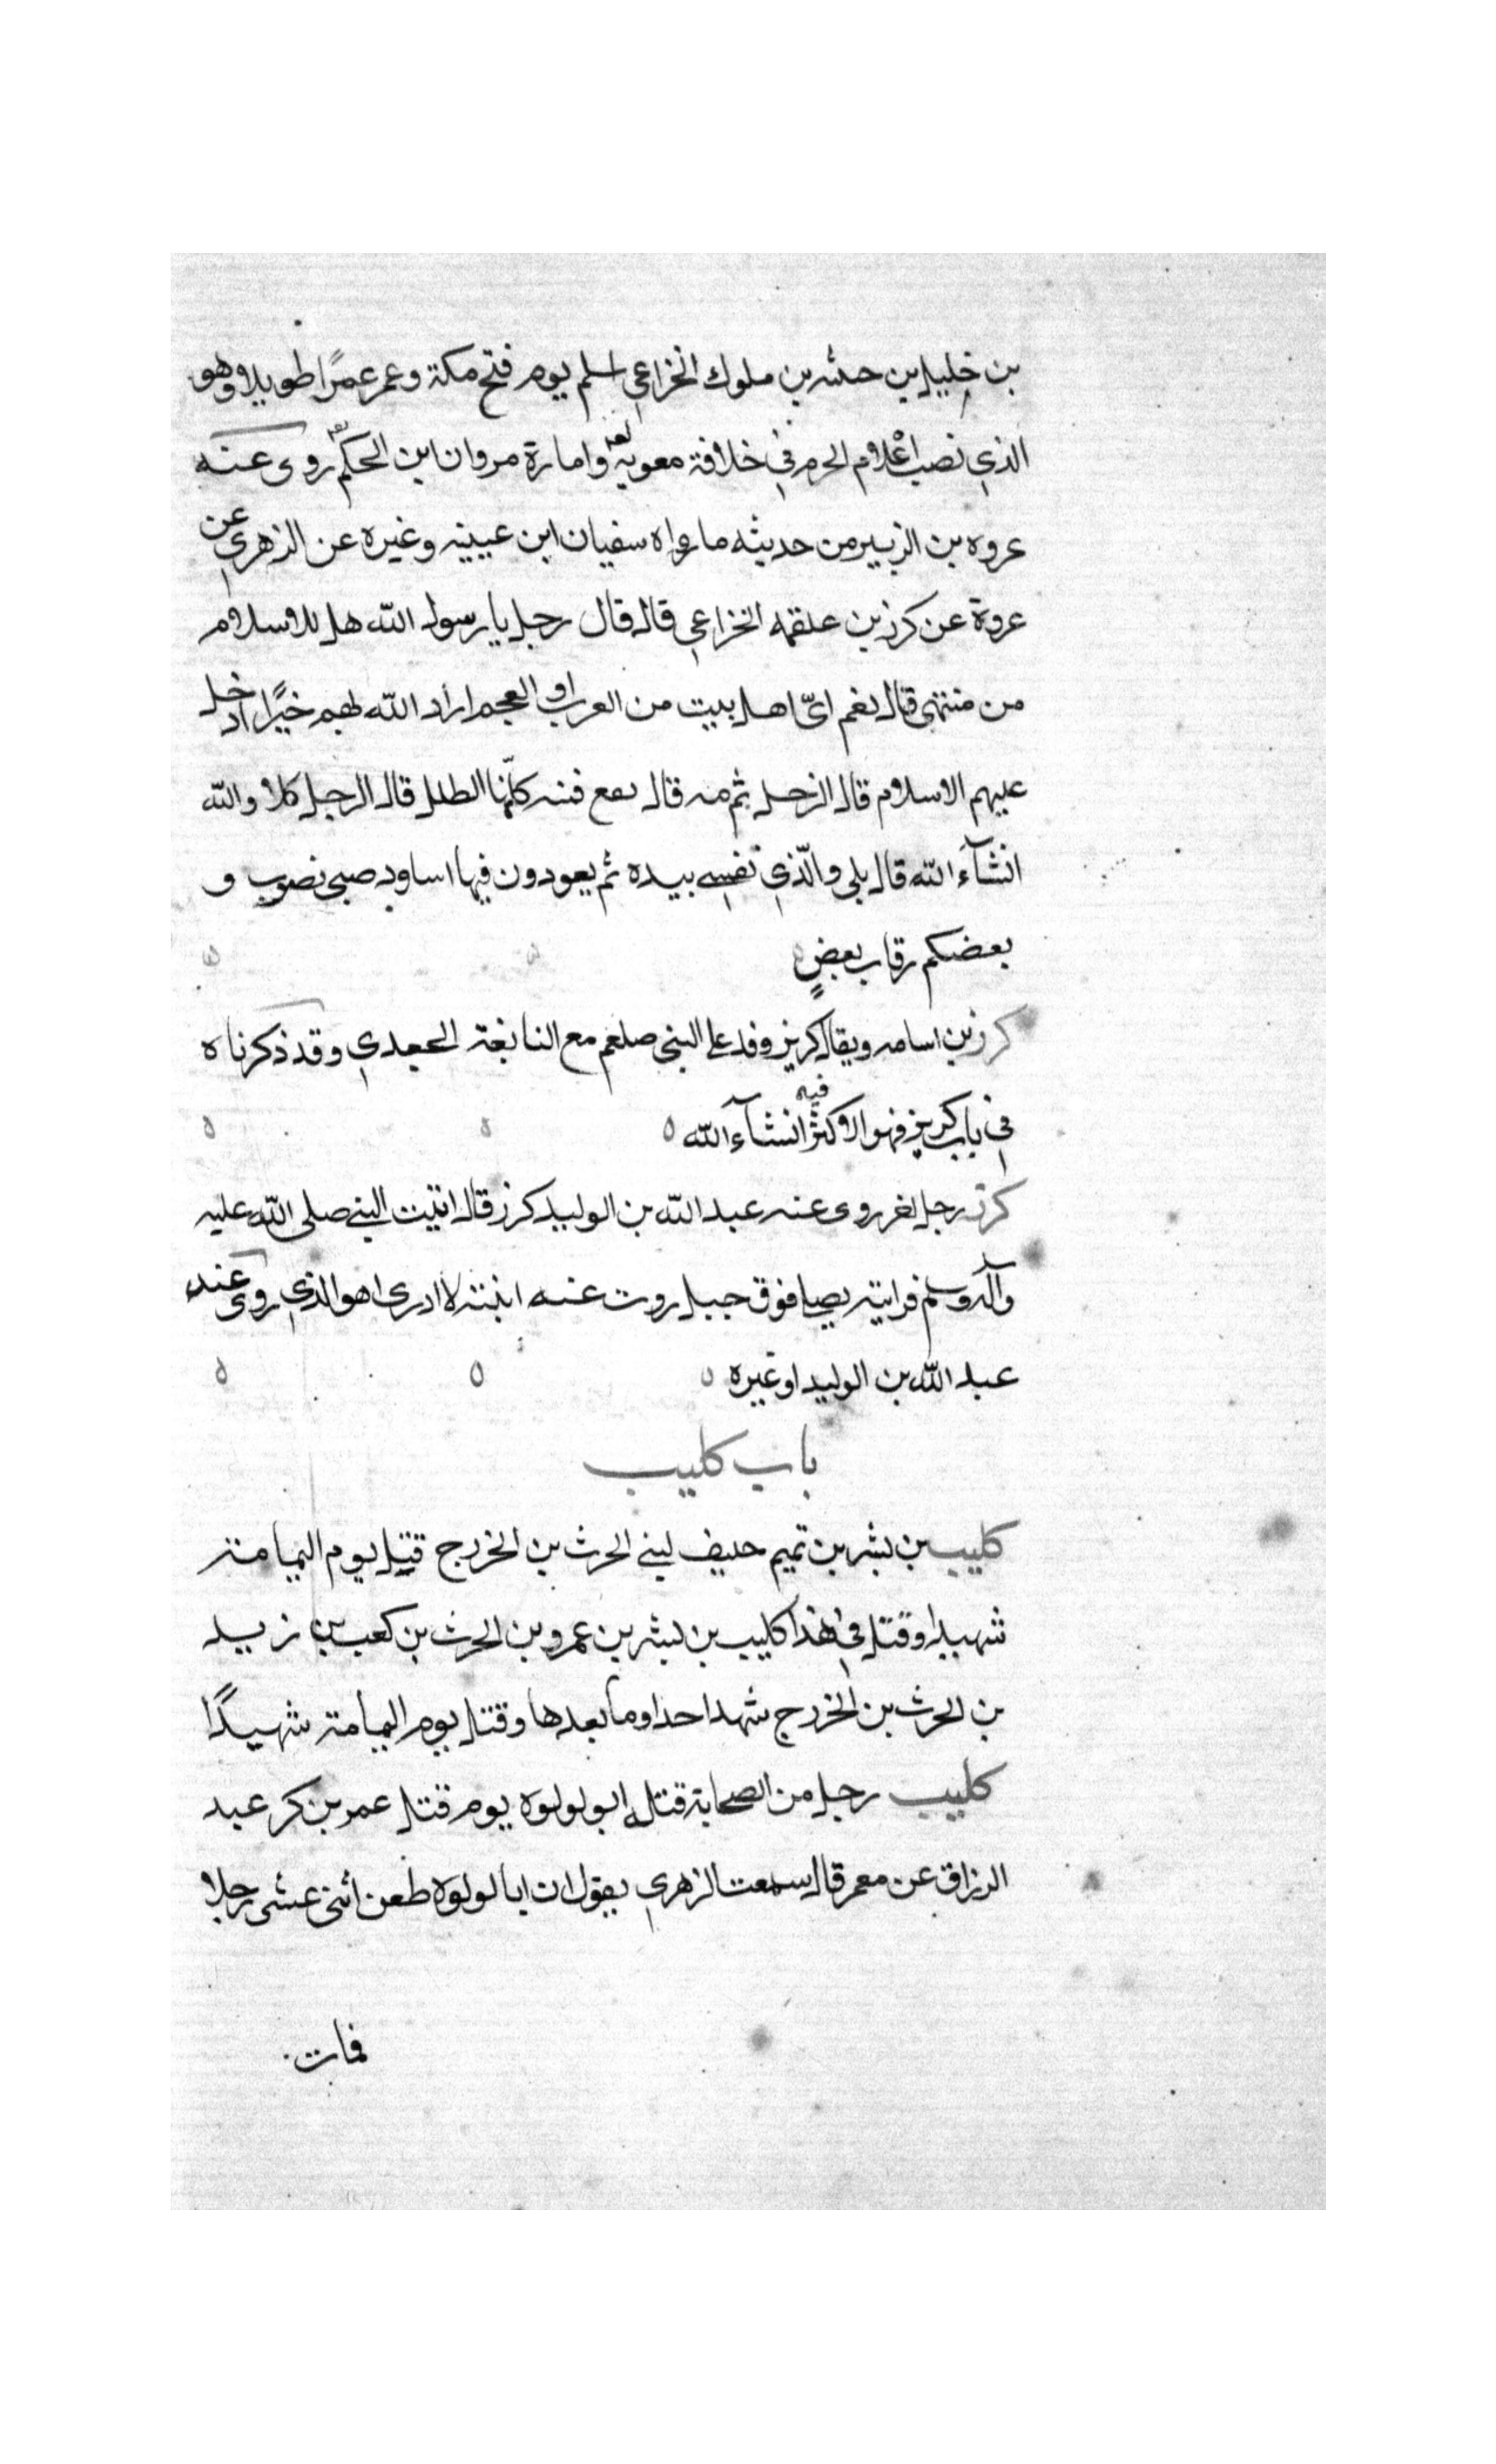 بن خليل بن حبشه بن ملوك الخزاعى اسلم يوم فتح مكة وعمر عمرًا طويلا وهو
الذى نصب اعْلام الحرم فى خلافة معوية وامارة مروان ابن الحكم روى عنه
عروه بن الزبير من حديثه ما رواه سفيان ابن عيينه وغيره عن الزهرى عن
عروة عن كرز بن علقمه الخزاعى قال قال رجل يا رسول الله هل للاسلام
من منتهى قال نعم اىّ اهل بيت من العرب او العجم اراد الله لهم خيرًا ادخل
عليهم الاسلام قال الرجل ثم مه قال يقع فتنه كانّها الظلل قال الرجل كلا والله
انشآء الله قال بلى والّذى نفسى بيده ثم يعودون فيها اساود صبى نصرب و
بعضكم رقاب بعضٍ
كرز بن اسامه ويقال كريز وفد على النبى صلعم مع النابغة الجعدى وقد ذكرناه
فى باب كريز فهو الاكثر فيه انشآء الله
كرز رجل اخر روى عنه عبد الله بن الوليد كرز قال اتيت النبى صلى الله عليه
وآله وسلم فرايته يصلى فوق جبل روت عنه ابنته لا ادرى اهو الذى روى عنه
عبد الله بن الوليد او غيره
باب كليب
كليب بن بشر بن تميم حليف لبنى الحرث بن الخزرج قتل يوم اليمامة
شهيدا وقتل فى هذا كليب بن بشر بن عمرو بن الحرث بن كعب بن زيد
بن الحرث بن الخزرج شهد احدا وما بعدها وقتل يوم اليمامة شهيدًا
كليب رجل من الصحابة قتله ابو لولوه يوم قتل عمر بن كر عبد
الرزاق عن معمر قال سمعت الزهرى يقول ان ابا لولوه طعن اثنى عشر رجلا
فمات